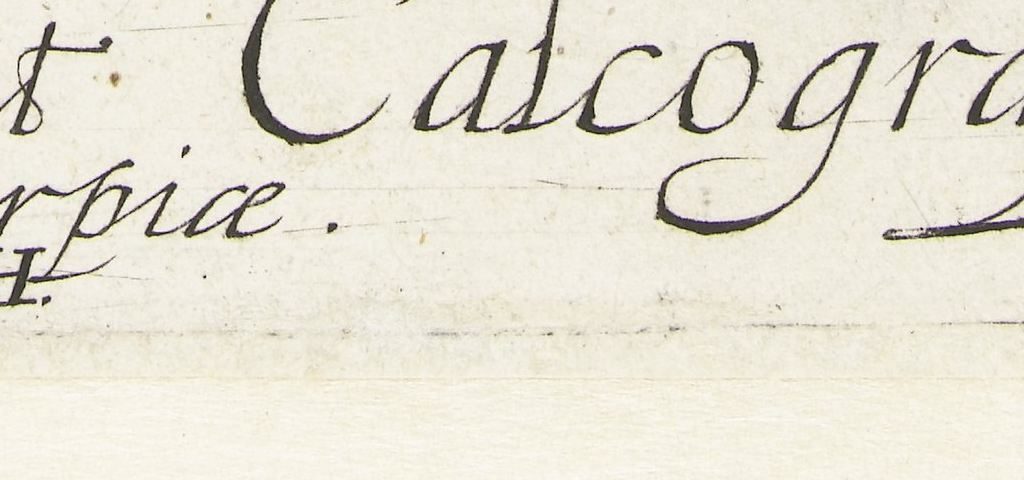 t Calcogra
rpiæ.
H.